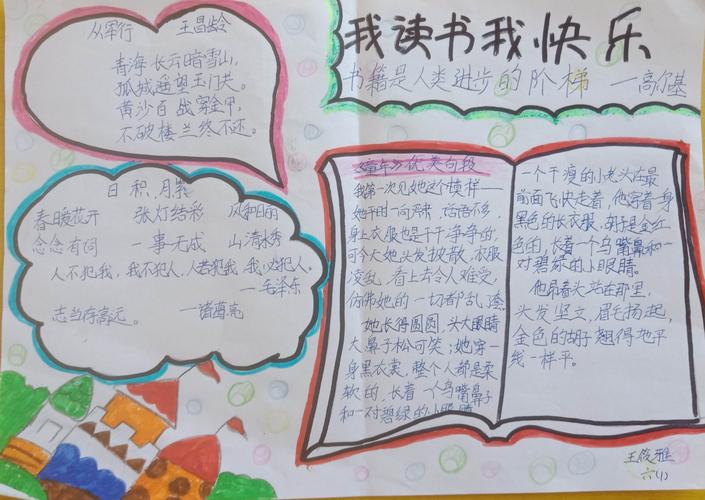 我读书我快乐
书籍是人类进步的阶梯 —高尔基
从军行 王昌龄
青海长云暗雪山,
孤城遥望玉门关。
黄沙百战穿金甲,
不破楼兰终不还。
日积月累
春暖花开 张灯结彩 风和日丽
念念有词 一事无成 山清水秀
人不犯我,我不犯人,人若犯我,我必犯人。
—毛泽东
志当存高远。 —诸葛亮
《童年》优美句段
我第一次见她这个模样——
她平时一向严肃,话语不多,
身上衣服也是干干净净的,
可今天她头发披散,衣服
凌乱,看上去令人难受,
仿佛她的一切都乱了套
她长得圆圆,头大眼睛
大鼻子松可笑;她穿一
身黑衣裳,整个人都是柔
软的,长着一个鸟嘴鼻子
和一对碧绿的小眼睛
一个干瘦的小老头在最
前面飞快走着,他穿着一身
黑色的长衣服,胡子是金红
色的,长着一个鸟嘴鼻和一
对碧绿的小眼睛。
他昂着头站在那里,
头发竖立,眉毛扬起,
金色的胡子翘得地平
线一样平。
王俊雅
六(1)